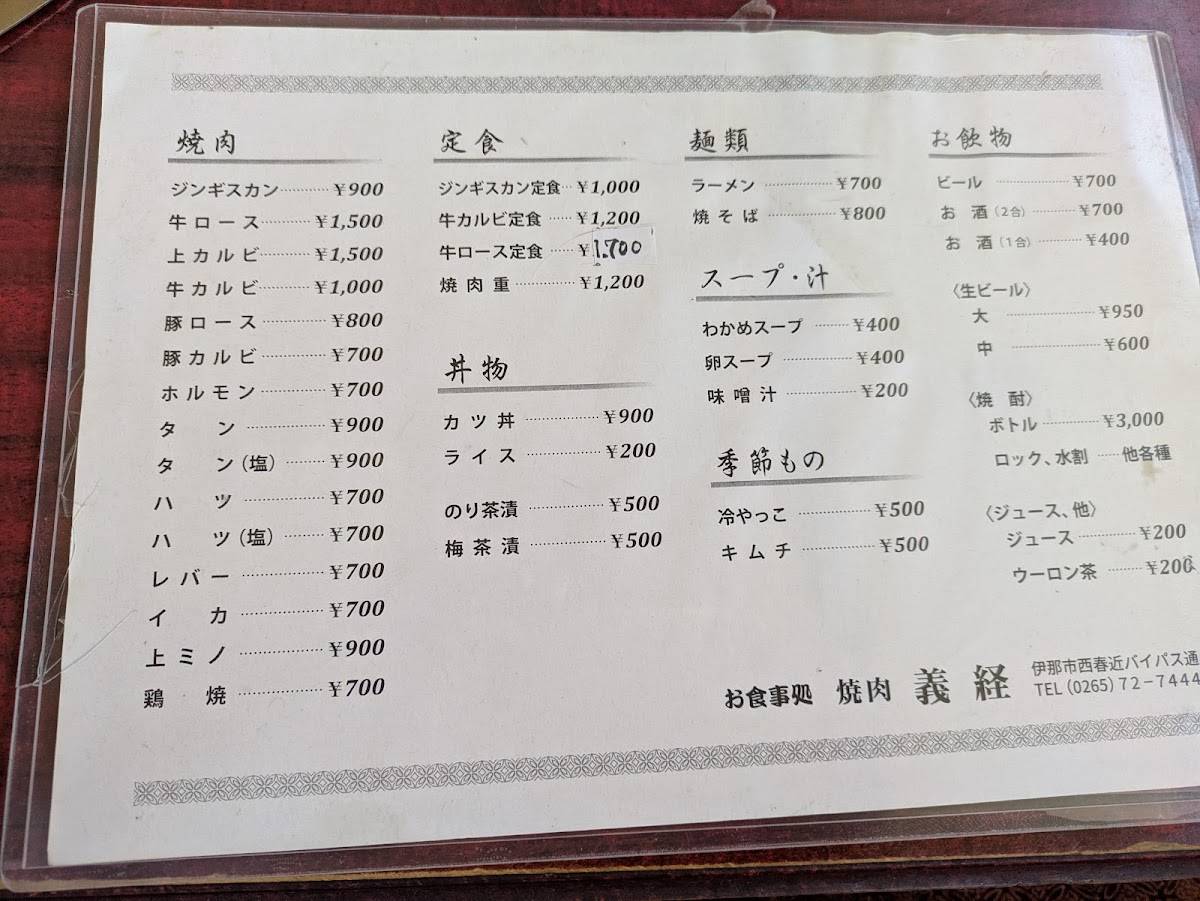 焼肉
ジンギスカン………¥900
牛ロース………¥1,500
上カルビ………¥1,500
牛カルビ………¥1,000
豚ロース………¥800
豚カルビ………¥700
ホルモン………¥700
タン………¥900
タン(塩)………¥900
ハツ………¥700
ハツ(塩)………¥700
レバー………¥700
イカ………¥700
上ミノ………¥900
鶏焼………¥700
定食
ジンギスカン定食…¥1,000
牛カルビ定食……¥1,200
牛ロース定食……¥1.700
焼肉重………¥1,200
丼物
カツ丼………¥900
ライス………¥200
のり茶漬………¥500
梅茶漬………¥500
麺類
ラーメン………¥700
焼そば………¥800
スープ・汁
わかめスープ………¥400
卵スープ………¥400
味噌汁………¥200
季節もの
冷やっこ………¥500
キムチ………¥500
お飲物
ビール………¥700
お酒(2合)………¥700
お酒(1合)………¥400
〈生ビール〉
大………¥950
中………¥600
〈焼酎〉
ボトル………¥3,000
ロック、水割……他各種
〈ジュース、他〉
ジュース………¥200
ウーロン茶………¥200
お食事処 焼肉 義経
伊那市西春近バイパス通
TEL(0265)72-7444